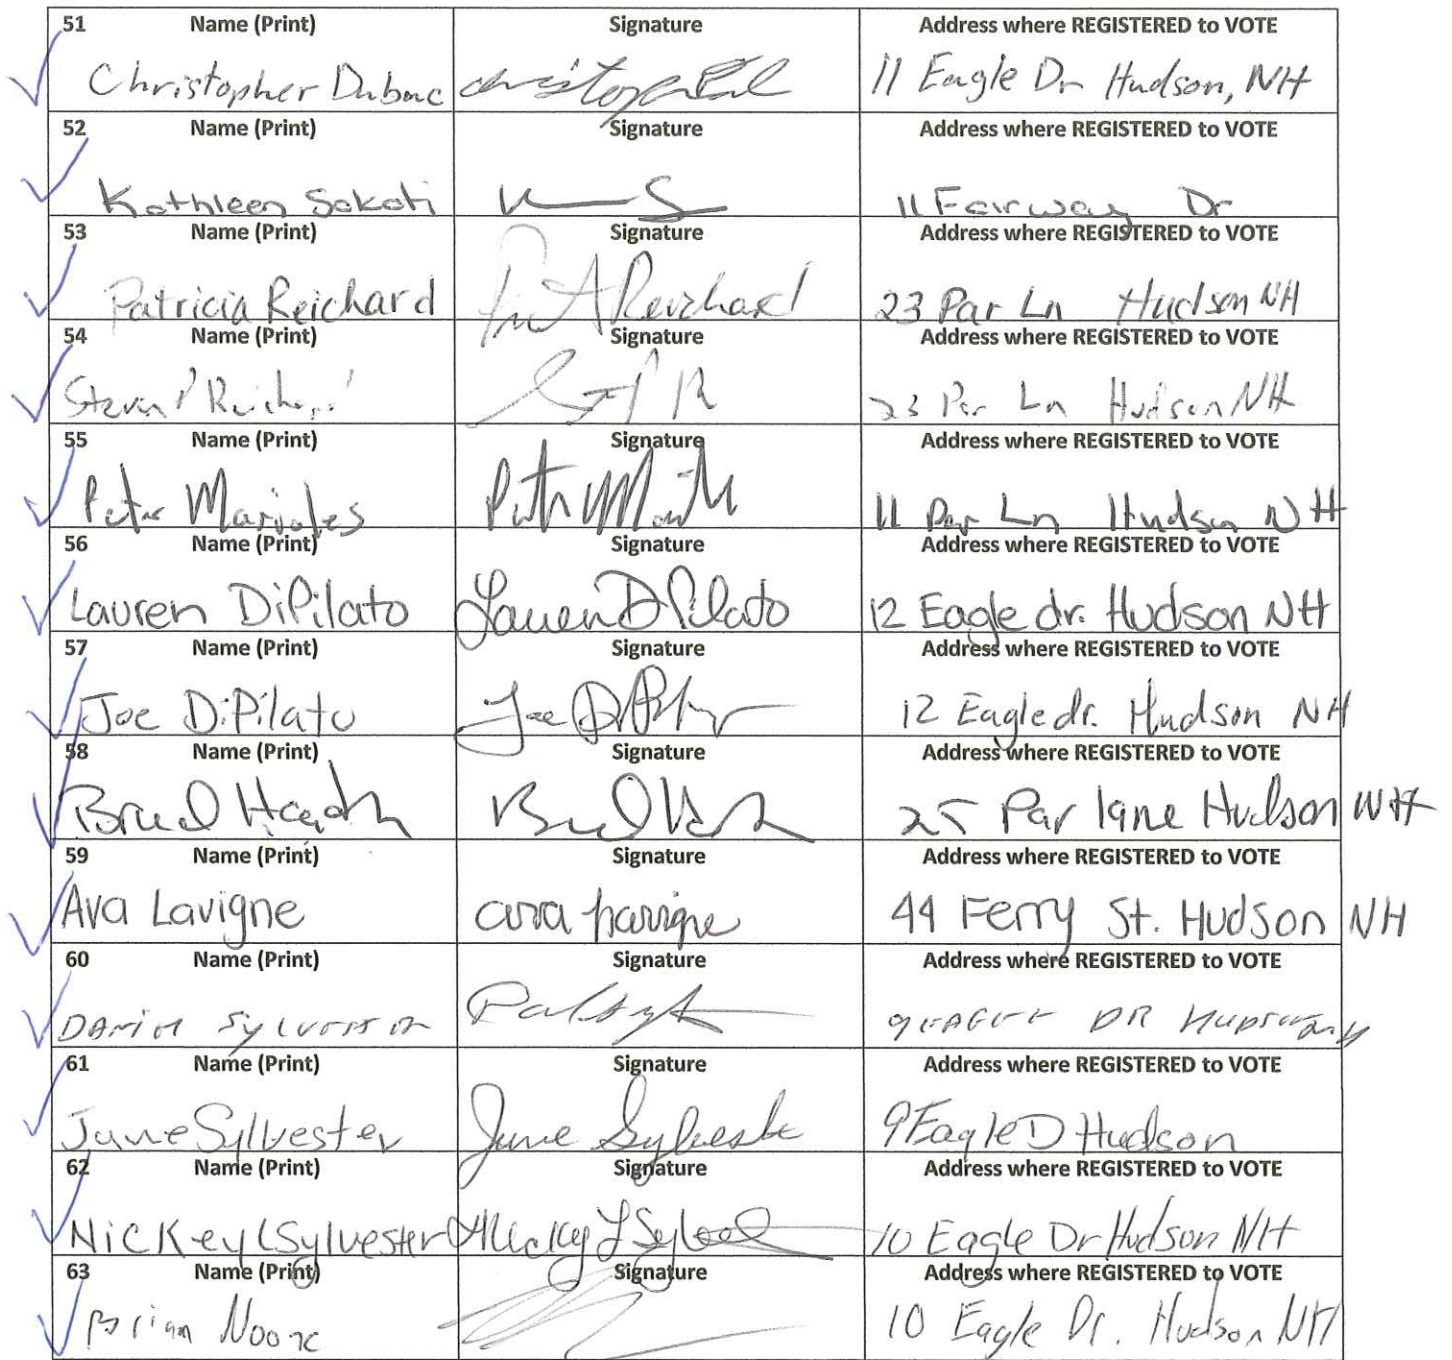 51 Name (Print) Signature Address where REGISTERED to VOTE
Christopher Dubuc 11 Eagle Dr Hudson, NH
52 Name (Print) Signature Address where REGISTERED to VOTE
Kathleen Sakati 11 Fairway Dr
53 Name (Print) Signature Address where REGISTERED to VOTE
Patricia Reichard Reichard 23 Par Ln Hudson NH
54 Name (Print) Signature Address where REGISTERED to VOTE
Steven P 23 Par Ln Hudson NH
55 Name (Print) Signature Address where REGISTERED to VOTE
Peter 11 Par Ln Hudson NH
56 Name (Print) Signature Address where REGISTERED to VOTE
Lauren DiPilato Lauren DiPilato 12 Eagle dr. Hudson NH
57 Name (Print) Signature Address where REGISTERED to VOTE
Joe DiPilato Joe 12 Eagle dr. Hudson NH
58 Name (Print) Signature Address where REGISTERED to VOTE
Brad 25 Par lane Hudson NH
59 Name (Print) Signature Address where REGISTERED to VOTE
Ava Lavigne ava lavigne 44 Ferry St. Hudson NH
60 Name (Print) Signature Address where REGISTERED to VOTE
9 EAGLE DR
61 Name (Print) Signature Address where REGISTERED to VOTE
June Sylvester June Sylvester 9 Eagle D Hudson
62 Name (Print) Signature Address where REGISTERED to VOTE
Nickey L Sylvester 10 Eagle Dr Hudson NH
63 Name (Print) Signature Address where REGISTERED to VOTE
Brian 10 Eagle Dr. Hudson NH